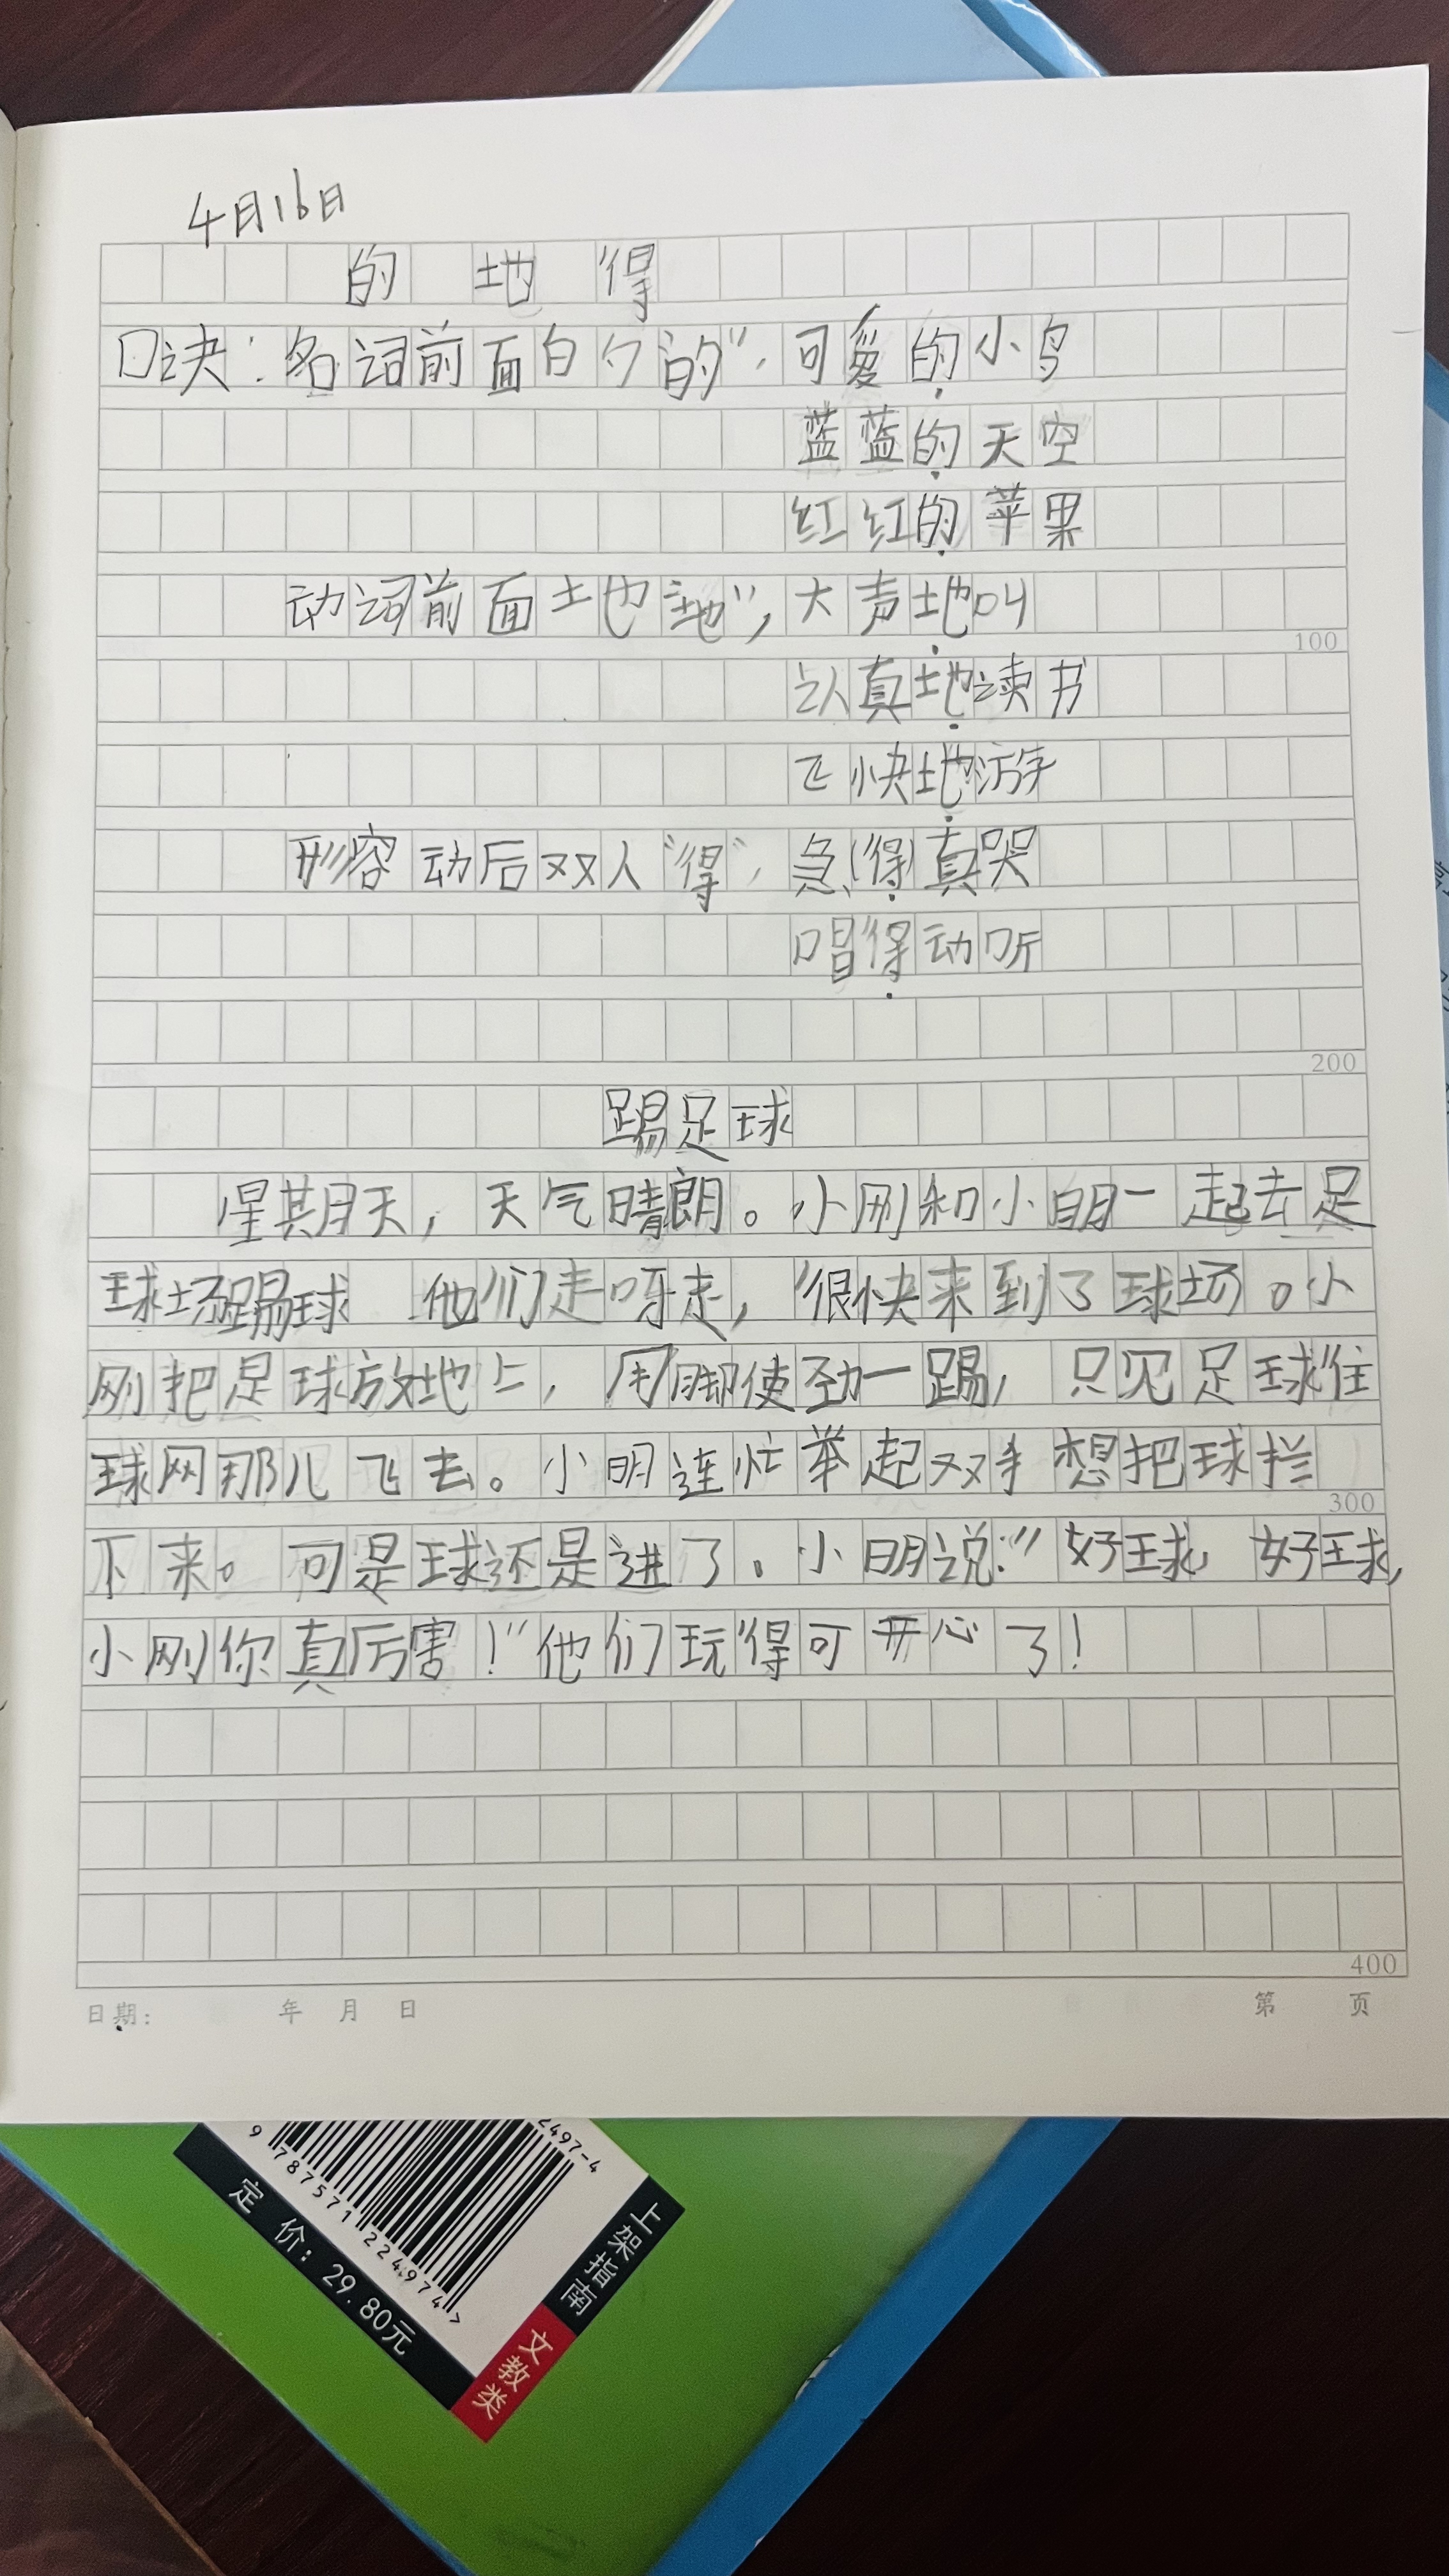 4月16日
的 地 得
口诀：名词前面白勺“的”，可爱的小鸟
蓝蓝的天空
红红的苹果
动词前面土也“地”，大声地叫
100
认真地读书
飞快地游
形容动后双人“得”，急得真哭
唱得动听
200
踢足球
星期天，天气晴朗。小刚和小明一起去足
球场踢球 他们走呀走，很快来到了球场。小
刚把足球放地上，用脚使劲一踢，只见足球往
球网那儿飞去。小明连忙举起双手想把球拦
300
下来。可是球还是进了。小明说：“好球，好球，
小刚你真厉害！”他们玩得可开心了！
400
日期： 年 月 日 第 页
2497-4
9 787571 224974>
定价：29.80元
上架指南
文教类